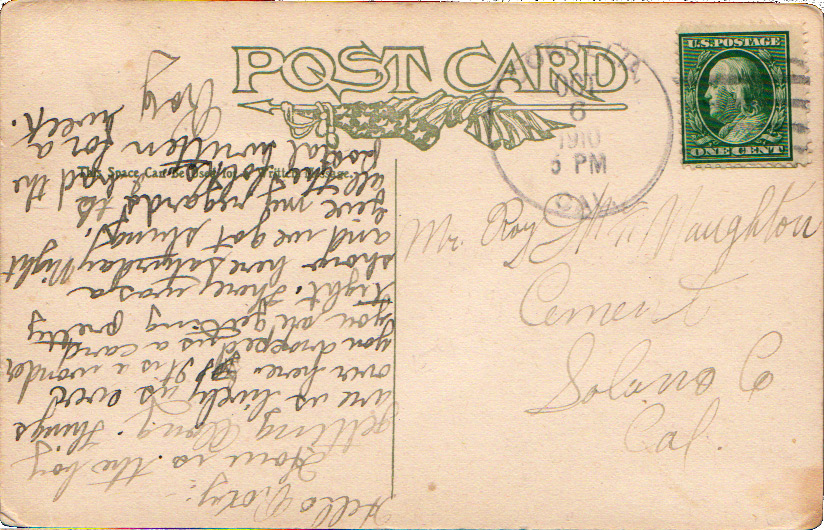 POST CARD
This Space Can Be Used for Written Message.
U.S. POSTAGE
ONE CENT
OCT
6
1910
5 PM
CAL.
Mr. Roy McNaughton
Cement
Solano Co
Cal.
Hello Roy:
How is the boy
getting along. Things
are as lively as ever
over here. It is a wonder
you dropped us a card
you are getting pretty
tight. There was a
show here Saturday Night
and we got stung.
Give my regards to
all the folks. Had the
postal written for a
week.
Roy